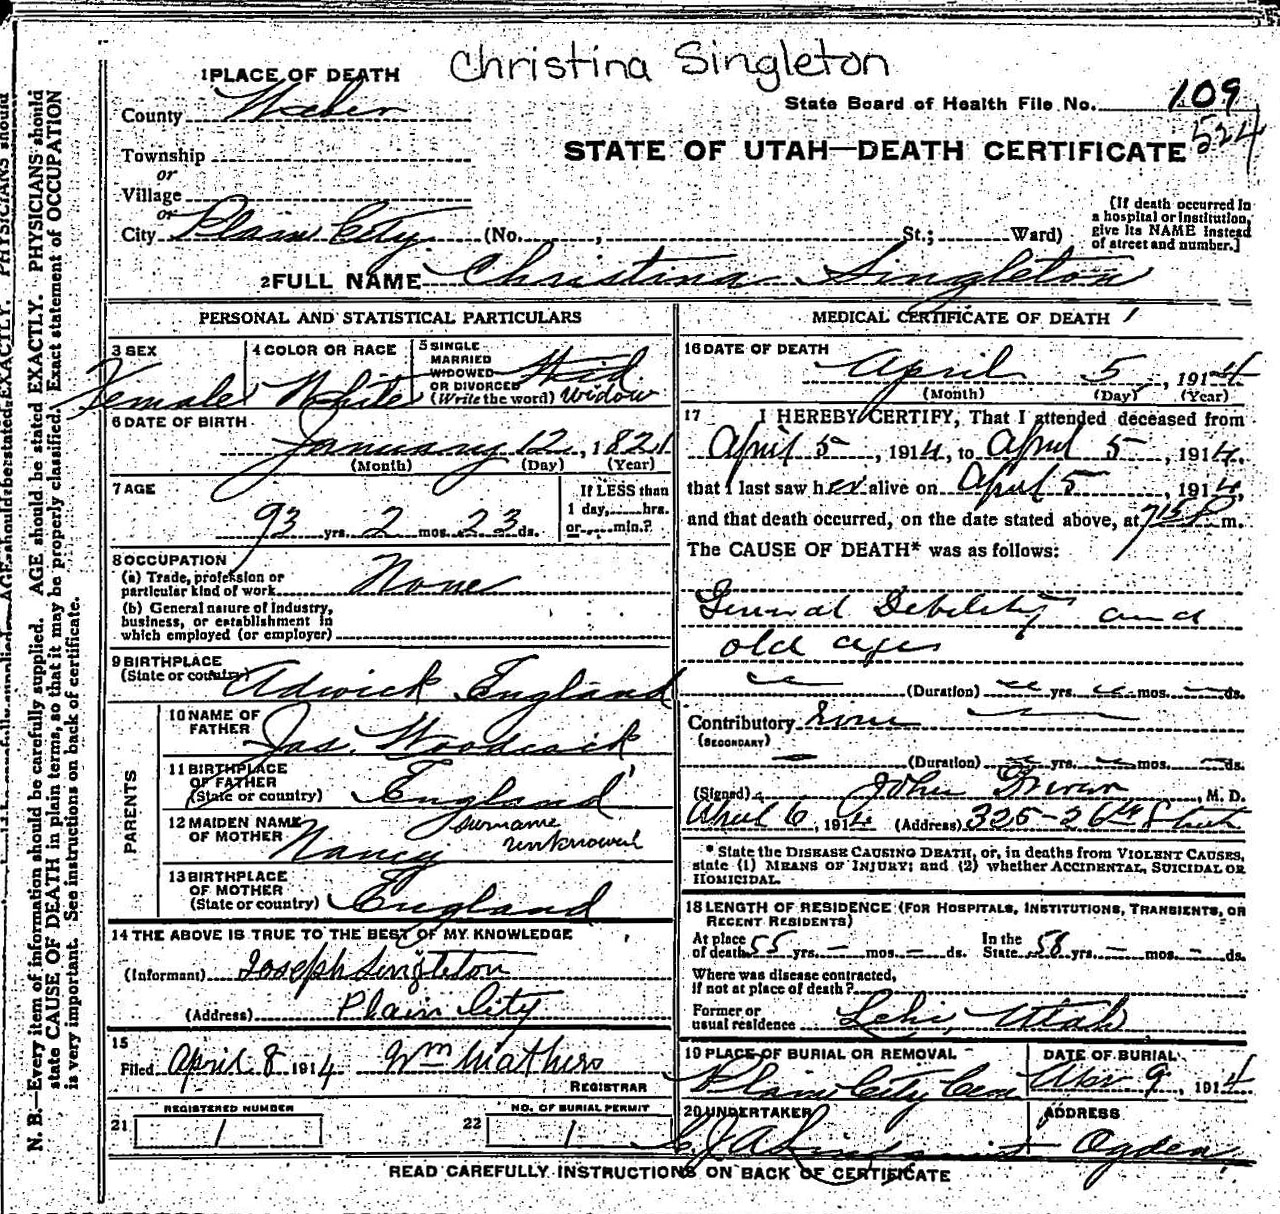 Christina Singleton
1 PLACE OF DEATH
State Board of Health File No. 109
County Weber
524
STATE OF UTAH—DEATH CERTIFICATE
Township
or
Village
or
City Plain City (No. , St.; Ward)
[If death occurred in a hospital or institution, give its NAME instead of street and number.]
2 FULL NAME Christina Singleton
PERSONAL AND STATISTICAL PARTICULARS
3 SEX
Female
4 COLOR OR RACE
White
5 SINGLE
MARRIED
WIDOWED
OR DIVORCED Wid
(Write the word) Widow
6 DATE OF BIRTH
January 12, 1821
(Month) (Day) (Year)
7 AGE
93 yrs. 2 mos. 23 ds.
If LESS than
1 day, hrs.
or min.?
8 OCCUPATION
(a) Trade, profession or
particular kind of work None
(b) General nature of industry,
business, or establishment in
which employed (or employer)
9 BIRTHPLACE
(State or country) Adwick England
PARENTS
10 NAME OF
FATHER Jas. Woodcock
11 BIRTHPLACE
OF FATHER
(State or country) England
12 MAIDEN NAME
OF MOTHER Nancy surname unknown
13 BIRTHPLACE
OF MOTHER
(State or country) England
14 THE ABOVE IS TRUE TO THE BEST OF MY KNOWLEDGE
(Informant) Joseph Singleton
(Address) Plain City
15
Filed April 8 1914 Wm Mathers
REGISTRAR
21 REGISTERED NUMBER
1
22 NO. OF BURIAL PERMIT
1
MEDICAL CERTIFICATE OF DEATH
16 DATE OF DEATH
April 5, 1914
(Month) (Day) (Year)
17 I HEREBY CERTIFY, That I attended deceased from
April 5, 1914, to April 5, 1914,
that I last saw her alive on April 5, 1914,
and that death occurred, on the date stated above, at 715 P m.
The CAUSE OF DEATH* was as follows:
General Debility and
old age
(Duration) yrs. mos. ds.
Contributory
(SECONDARY)
(Duration) yrs. mos. ds.
(Signed) John , M. D.
April 6, 1914 (Address) 325-26th Street
* State the DISEASE CAUSING DEATH, or, in deaths from VIOLENT CAUSES,
state (1) MEANS OF INJURY; and (2) whether ACCIDENTAL, SUICIDAL OR
HOMICIDAL.
18 LENGTH OF RESIDENCE (FOR HOSPITALS, INSTITUTIONS, TRANSIENTS, OR
RECENT RESIDENTS)
At place
of death 55 yrs. — mos. — ds. In the
State 58 yrs. — mos. — ds.
Where was disease contracted,
if not at place of death?
Former or
usual residence Lehi, Utah
19 PLACE OF BURIAL OR REMOVAL
Plain City Cem
DATE OF BURIAL
Apr 9, 1914
20 UNDERTAKER
ADDRESS
Ogden
READ CAREFULLY INSTRUCTIONS ON BACK OF CERTIFICATE
N. B.—Every item of information should be carefully supplied. AGE should be stated EXACTLY. PHYSICIANS should
state CAUSE OF DEATH in plain terms, so that it may be properly classified. Exact statement of OCCUPATION
is very important. See instructions on back of certificate.